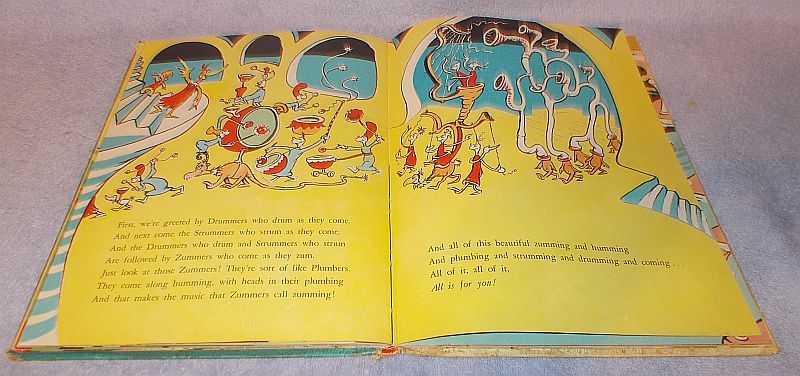 First, we're greeted by Drummers who drum as they come.
And next come the Strummers who strum as they come.
And the Drummers who drum and Strummers who strum
Are followed by Zummers who come as they zum.
Just look at those Zummers! They're sort of like Plumbers.
They come along humming, with heads in their plumbing
And that makes the music that Zummers call zumming!
And all of this beautiful zumming and humming
And plumbing and strumming and drumming and coming . . .
All of it, all of it,
All is for you!